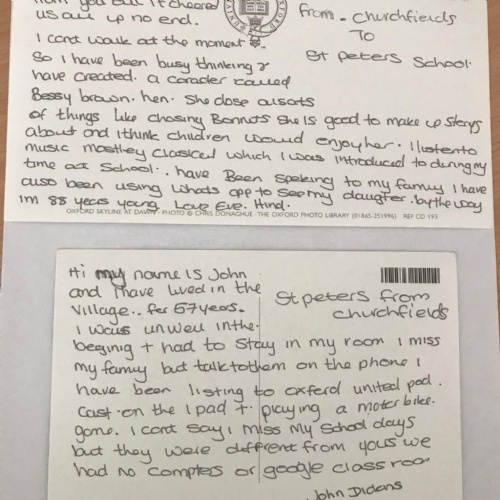 from you all it cheered
us all up no end.
I cant walk at the moment
So I have been busy thinking &
have created. a carader called
Bessy brown. hen. She dose alsots
of things like chasing Bonnots she is good to make up storys
about and I think children would enjoy her. I listen to
music mostley clasiced which I was introduced to during my
time at School.. have Been speking to my family I have
also been using whats app to see my daughter. by the way
im 88 years young. Love Eve. Hind.
OXFORD
from - Churchfields
To
St peters School.
OXFORD SKYLINE AT DAWN · PHOTO © CHRIS DONAGHUE · THE OXFORD PHOTO LIBRARY (01865-251996) REF CD 193
Hi my name is John
and I have lived in the
village.. for 67 years.
I was unwell in the.
begining + had to stay in my room I miss
my family but talk to them on the phone I
have been listing to oxferd united pod.
cast on the I pad + playing a moter bike.
game. I cant say I miss my school days
but they were different from yours we
had no compters or google class room
John Didens
St peters from
Churchfields